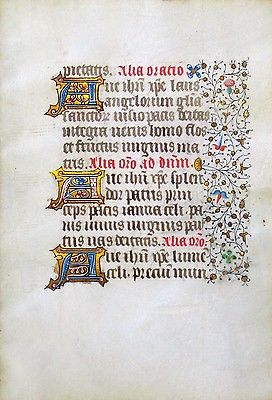 pietatis. Alia oratio
Aue ihu xpe laus
angelorum glia
sanctor visio pacis deitas
integra verus homo flos
et fructus virginis ma
tris. Alia oro ad dnm.
Aue ihu xpe splen
dor patris prin
ceps pacis ianua celi. pa
nis viuus virginis partus
vas deitatis. Alia oro.
Aue ihu xpe lumen
celi. precium mun